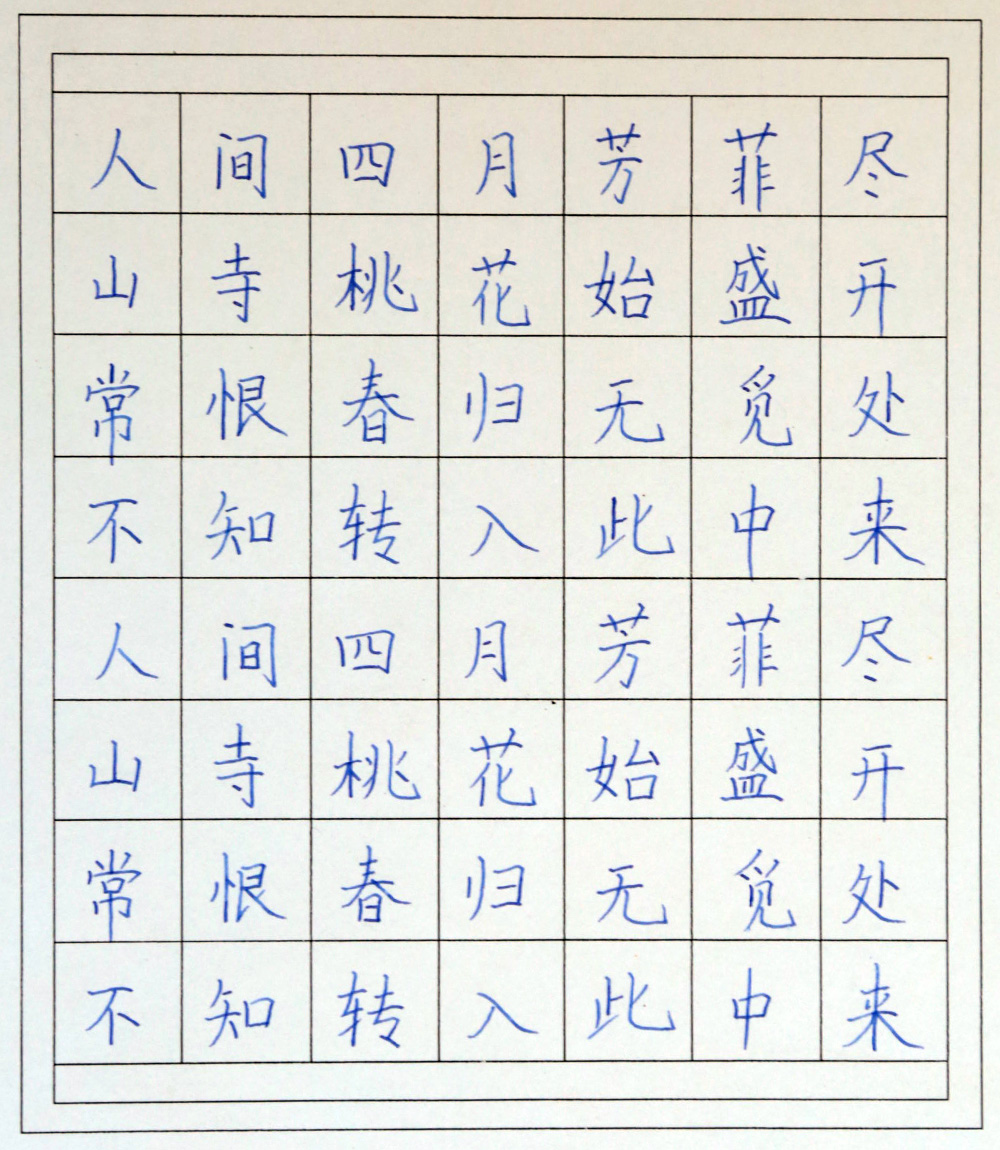 人间四月芳菲尽
山寺桃花始盛开
常恨春归无觅处
不知转入此中来
人间四月芳菲尽
山寺桃花始盛开
常恨春归无觅处
不知转入此中来